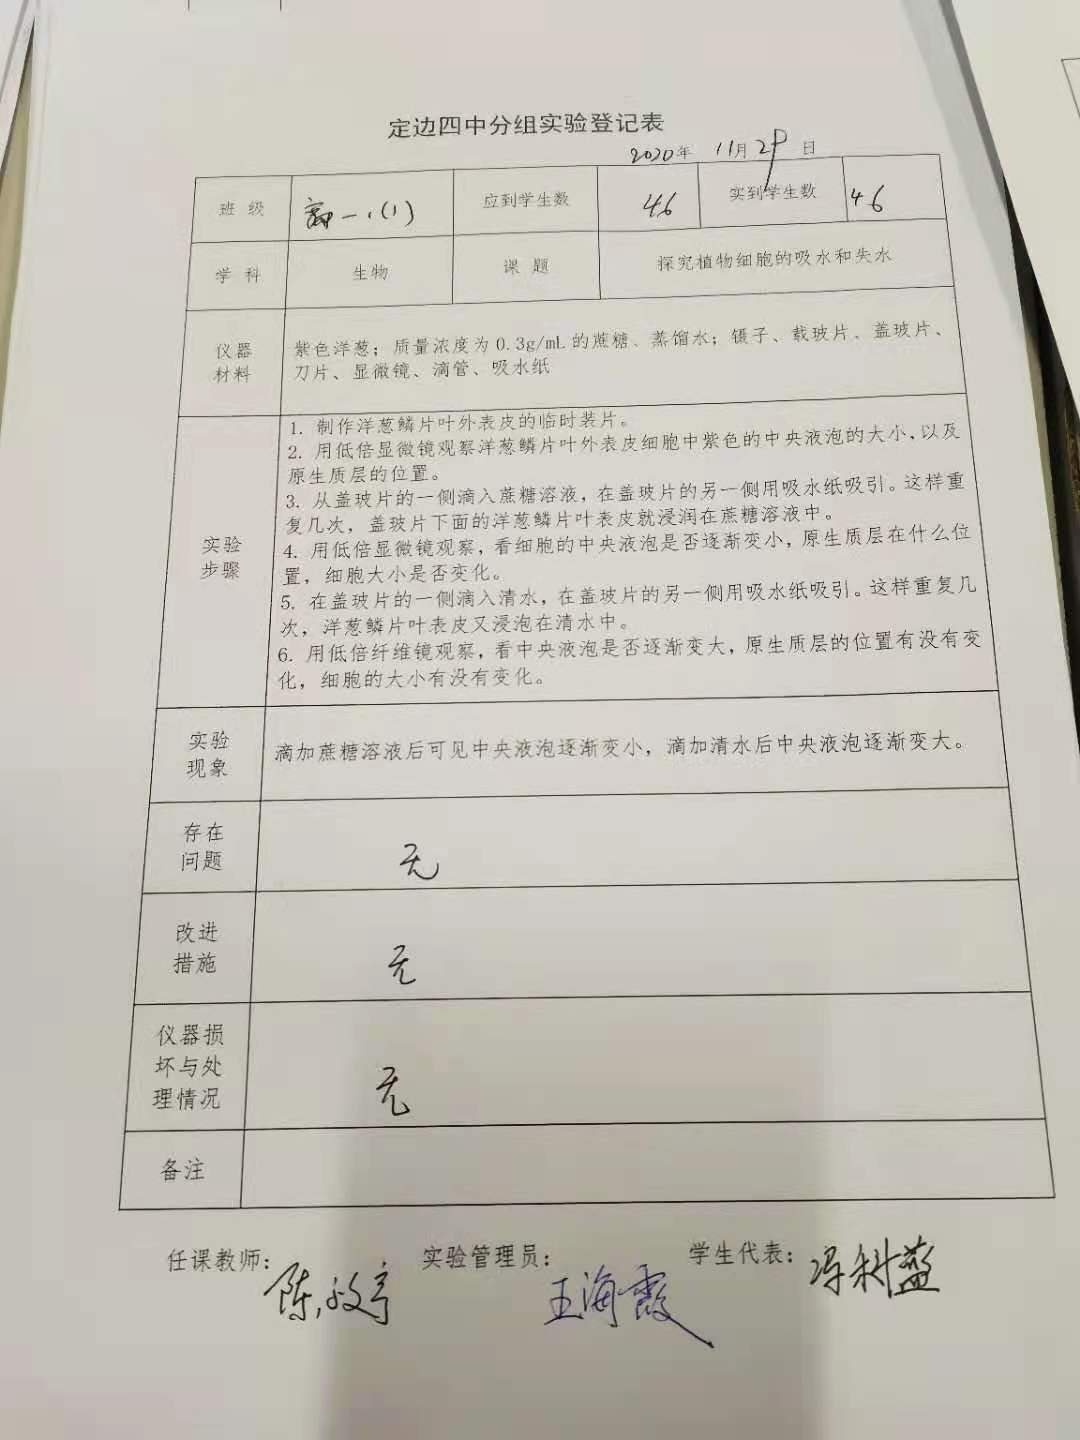 定边四中分组实验登记表
2020年 11月29日
班 级 高一.(1) 应到学生数 46 实到学生数 46
学 科 生物 课 题 探究植物细胞的吸水和失水
仪器
材料
紫色洋葱；质量浓度为 0.3g/mL 的蔗糖、蒸馏水；镊子、载玻片、盖玻片、
刀片、显微镜、滴管、吸水纸
实验
步骤
1. 制作洋葱鳞片叶外表皮的临时装片。
2. 用低倍显微镜观察洋葱鳞片叶外表皮细胞中紫色的中央液泡的大小，以及
原生质层的位置。
3. 从盖玻片的一侧滴入蔗糖溶液，在盖玻片的另一侧用吸水纸吸引。这样重
复几次，盖玻片下面的洋葱鳞片叶表皮就浸润在蔗糖溶液中。
4. 用低倍显微镜观察，看细胞的中央液泡是否逐渐变小，原生质层在什么位
置，细胞大小是否变化。
5. 在盖玻片的一侧滴入清水，在盖玻片的另一侧用吸水纸吸引。这样重复几
次，洋葱鳞片叶表皮又浸泡在清水中。
6. 用低倍纤维镜观察，看中央液泡是否逐渐变大，原生质层的位置有没有变
化，细胞的大小有没有变化。
实验
现象
滴加蔗糖溶液后可见中央液泡逐渐变小，滴加清水后中央液泡逐渐变大。
存在
问题
无
改进
措施
无
仪器损
坏与处
理情况
无
备注
任课教师： 实验管理员：王海霞 学生代表：